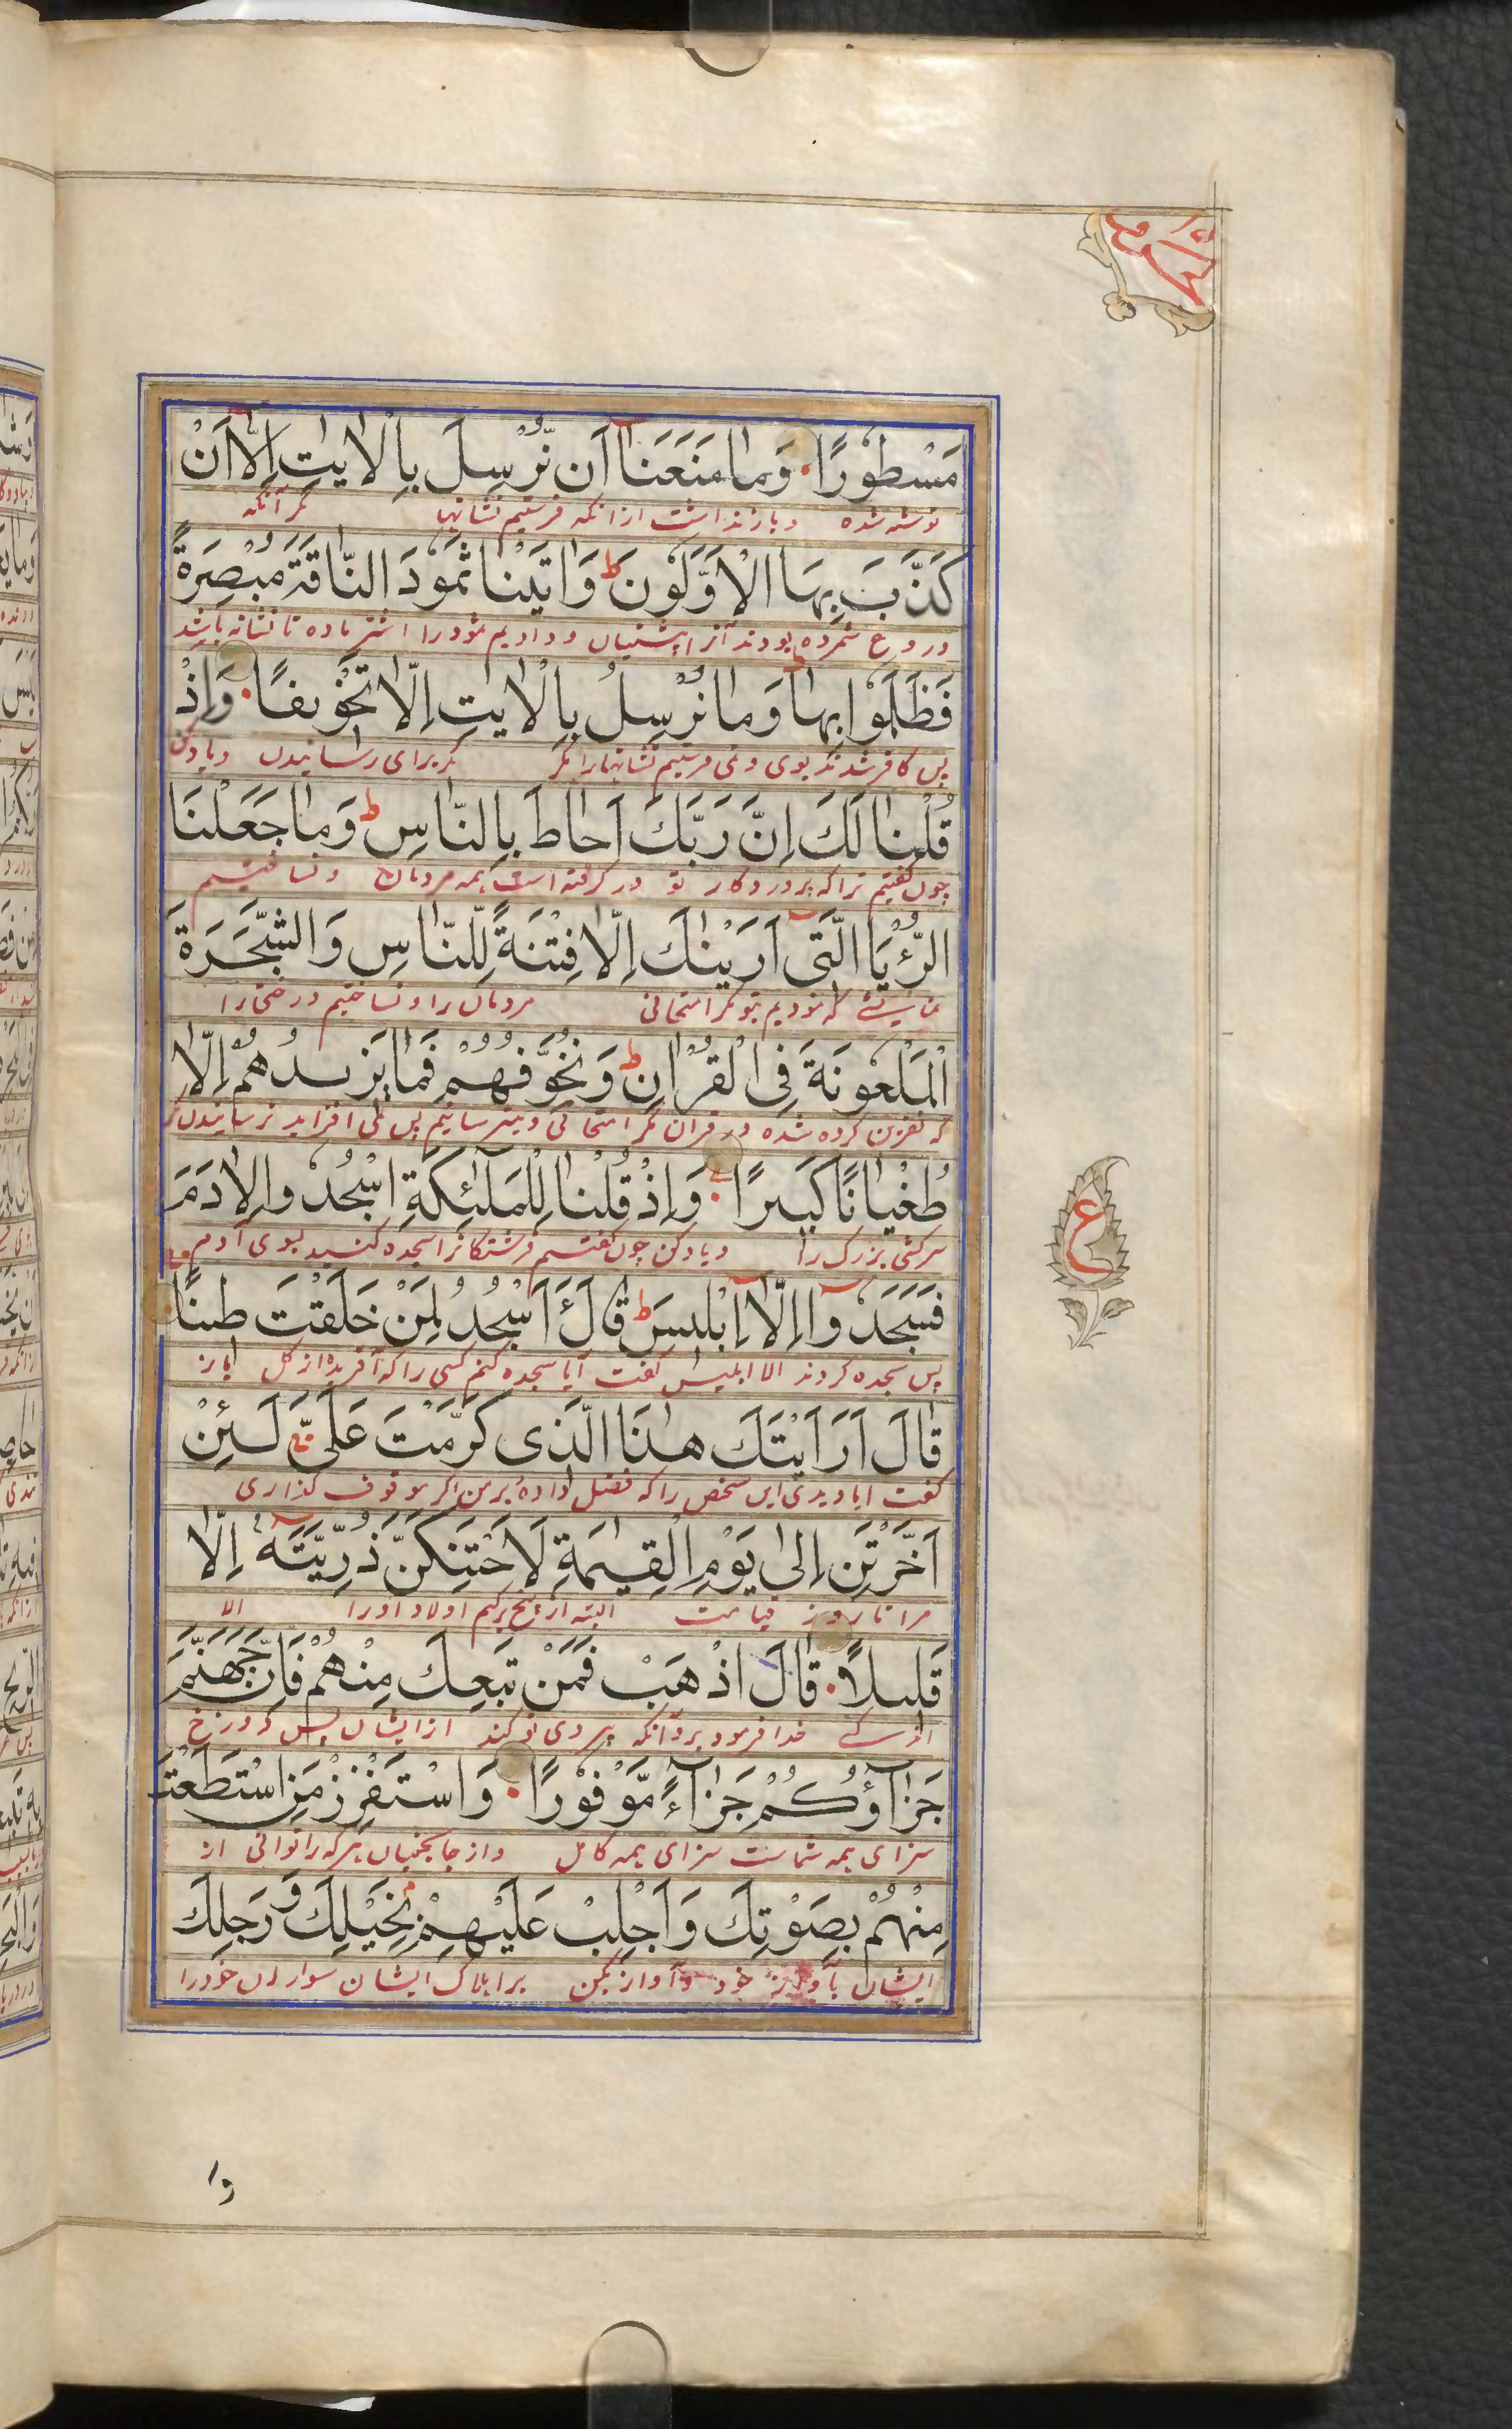 مَسْطُوْرًا وَمَا مَنَعَنَا اَن نُّرْسِلَ بِالْاٰیٰتِ اِلَّا اَنْ
نوشته شده وباز نداشت از انکه فرستیم نشانها مگر آنکه
كَذَّبَ بِهَا الْاَوَّلُوْنَ ط وَاٰتَيْنَا ثَمُوْدَ النَّاقَةَ مُبْصِرَةً
دروغ شمرده بودند آنرا پیشینیان ودادیم ثمود را اشتر ماده تا نشانه باشد
فَظَلَمُوْا بِهَا وَمَا نُرْسِلُ بِالْاٰيٰتِ اِلَّا تَخْوِيفًا وَاِذْ
پس کافر شدند بوی ونمی فرستیم نشانها را مگر مگر برای رسانیدن ویاد کن
قُلْنَا لَكَ اِنَّ رَبَّكَ اَحَاطَ بِالنَّاسِ ط وَمَا جَعَلْنَا
چون گفتیم ترا که پروردگار تو در گرفته است همه مردمان ونساختیم
الرُّءْيَا الَّتِی اَرَيْنٰكَ اِلَّا فِتْنَةً لِّلنَّاسِ وَالشَّجَرَةَ
که نمودیم بتو مگر امتحانی مردمان را ونساختیم درختی را
الْمَلْعُوْنَةَ فِی الْقُرْاٰنِ ط وَنُخَوِّفُهُمْ فَمَا يَزِيدُهُمْ اِلَّا
که نفرین کرده شده در قران مگر امتحانی ومیترسانیم پس نمی افزاید ترسانیدن
طُغْيَانًا كَبِيرًا وَاِذْ قُلْنَا لِلْمَلٰٓئِكَةِ اسْجُدُوا لِاٰدَمَ
سرکشی بزرگ را ویاد کن چون گفتیم فرشتگانرا سجده کنید بسوی آدم
فَسَجَدُوْٓا اِلَّآ اِبْلِيسَ ط قَالَ ءَاَسْجُدُ لِمَنْ خَلَقْتَ طِينًا
پس سجده کردند الا ابلیس گفت آیا سجده کنم کسی را که آفریدۀ از گل
قَالَ اَرَاَيْتَكَ هٰذَا الَّذِی كَرَّمْتَ عَلَیَّ لَئِنْ
گفت ایا دیدی این شخص را که فضل دادۀ بر من اگر موقوف گذاری
اَخَّرْتَنِ اِلٰى يَوْمِ الْقِيٰمَةِ لَاَحْتَنِكَنَّ ذُرِّيَّتَهٗٓ اِلَّا
مرا تا روز قیامت البته از بیخ برکنم اولاد او را الا
قَلِيلًا قَالَ اذْهَبْ فَمَنْ تَبِعَكَ مِنْهُمْ فَاِنَّ جَهَنَّمَ
اندکے خدا فرمود برو آنکه پیروی تو کند از ایشان پس دوزخ
جَزَآؤُكُمْ جَزَآءً مَّوْفُوْرًا وَاسْتَفْزِزْ مَنِ اسْتَطَعْتَ
سزای همه شماست سزای همه کامل واز جا بجنبان هر که را توانی از
مِنْهُمْ بِصَوْتِكَ وَاَجْلِبْ عَلَيْهِمْ بِخَيْلِكَ وَرَجِلِكَ
ایشان بآواز خود وآواز بکن بر اهلاک ایشان سواران خود را
ع
وا